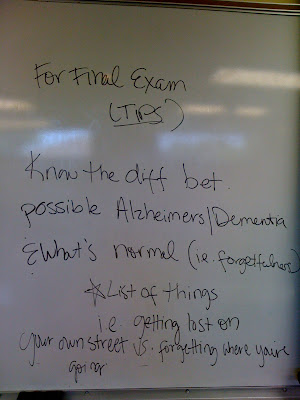 For Final Exam
(TIPS)
Know the diff bet.
possible Alzheimers/Dementia
& What's normal (i.e. forgetfulness)
☆ List of things
i.e. getting lost on
your own street vs. forgetting where you're
going